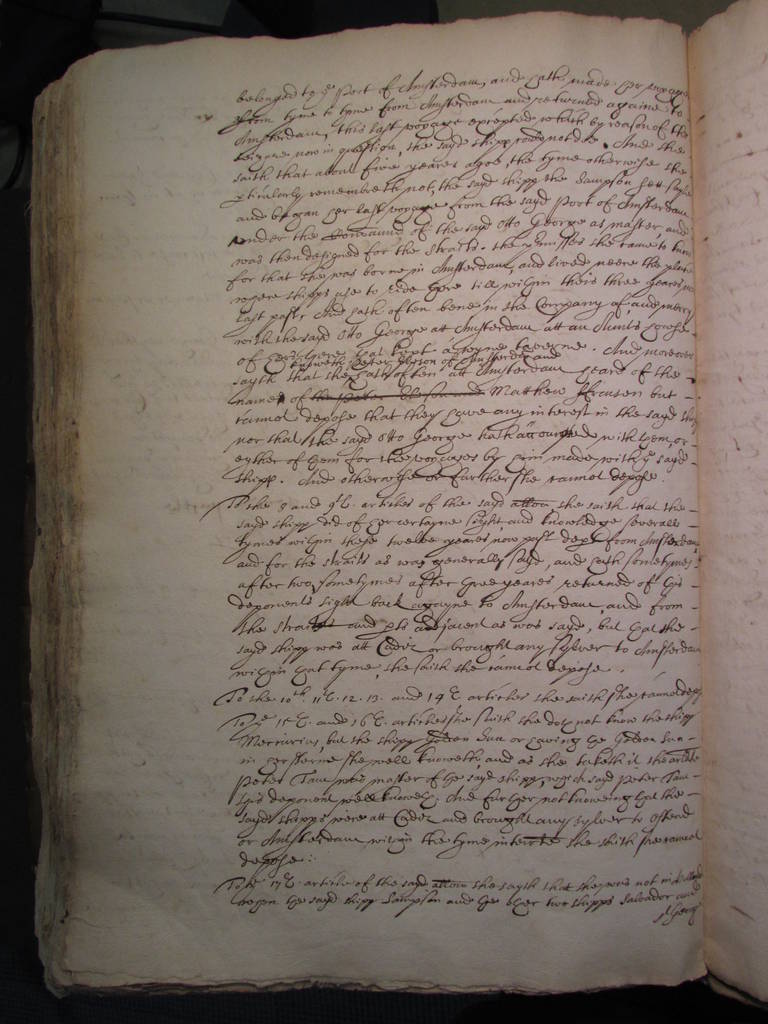 belonged to ye Port of Amsterdam, and hath made her voyage
from tyme to tyme from Amsterdam and returned againe to
Amsterdam, this last voyage excepted which by reason of the
seizure now in question, the sayd shipp could not doe. And she
saith that about five yeares agoe, the tyme otherwise she
remembreth not, the sayd shipp the Sampson sett sayle
and began her last voyage from the sayd Port of Amsterdam
under the Command of the sayd Otto George as master and
was then designed for the Straits. the premisses she came to know
for that she was borne in Amsterdam, and lived neere the place
where shipps use to ride there till within theis three yeares
last past, And hath often bene in the Company of, and merry
with the sayd Otto George at Amsterdam att an Aunts house
of hers that kept a taverne. And moreover
knoweth Peter of Amsterdam and
sayth that she hath often att Amsterdam heard of the
names of the Peter and Matthew Fransen but
cannot depose that they have any interest in the sayd shipp
nor that the sayd Otto George hath accounted with them, or
eyther of them for the voyages by him made with ye sayd
shipp. And otherwise or further she cannot depose.
To the 8 and 9th. articles of the sayd allon she saith that the
sayd shipp did of her certayne sight and knowledge severall
tymes within these twelve yeares now past depart from Amsterdam
and for the straits as was generally sayd, and hath sometymes
after two, sometymes after three yeares returned of this
deponents sight back agayne to Amsterdam, and from
the straits and pts adjacent as was sayd, but that the
sayd shipp was att Cadiz or brought any sylver to Amsterdam
within that tyme, she saith she cannot depose.
To the 10th. 11th. 12. 13. and 14th articles she saith she cannot depose
To ye 15th. and 16th. articles she saith she doth not know the shipp
Mercurius, but the shipp Golden Sun or having the Golden Sun
in her sterne she well knoweth, and as she taketh it the arlate
Peter Tam was master of the sayd shipp, which sayd Peter Tam
this deponent well knoweth. And further not knoweing that the
sayd shipps were att Cadiz and brought any sylver to Ostend
or Amsterdam within the tyme she saith she cannot
depose.
To the 17th. article of the sayd allon she sayth that she was not in
when the sayd shipp Sampson and the other two shipps Salvador and
St George